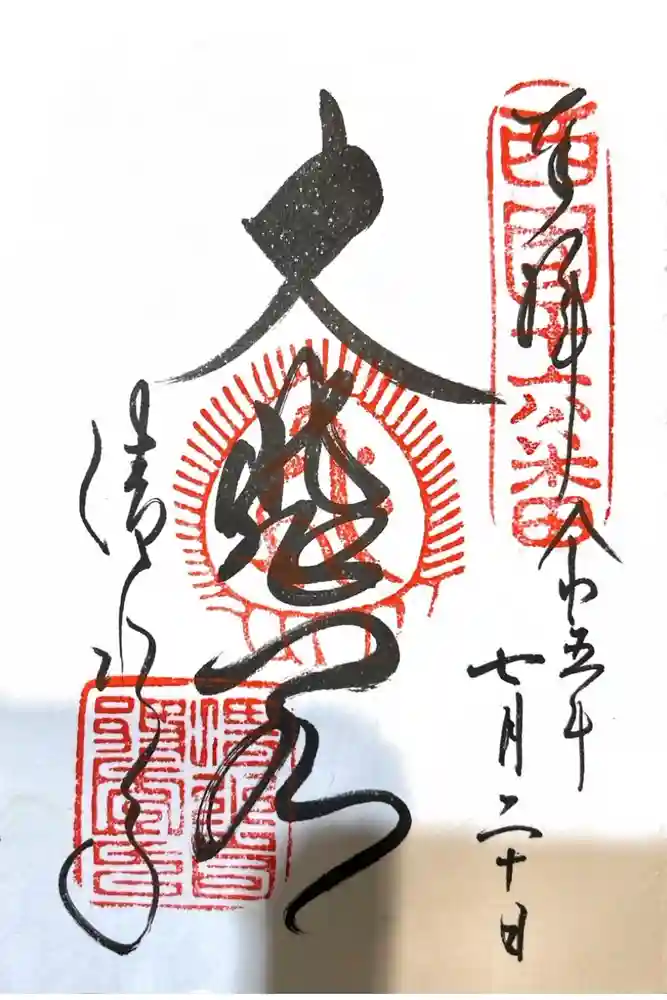 西國十六番
奉拝 令和五年
七月二十日
大悲閣
清水寺